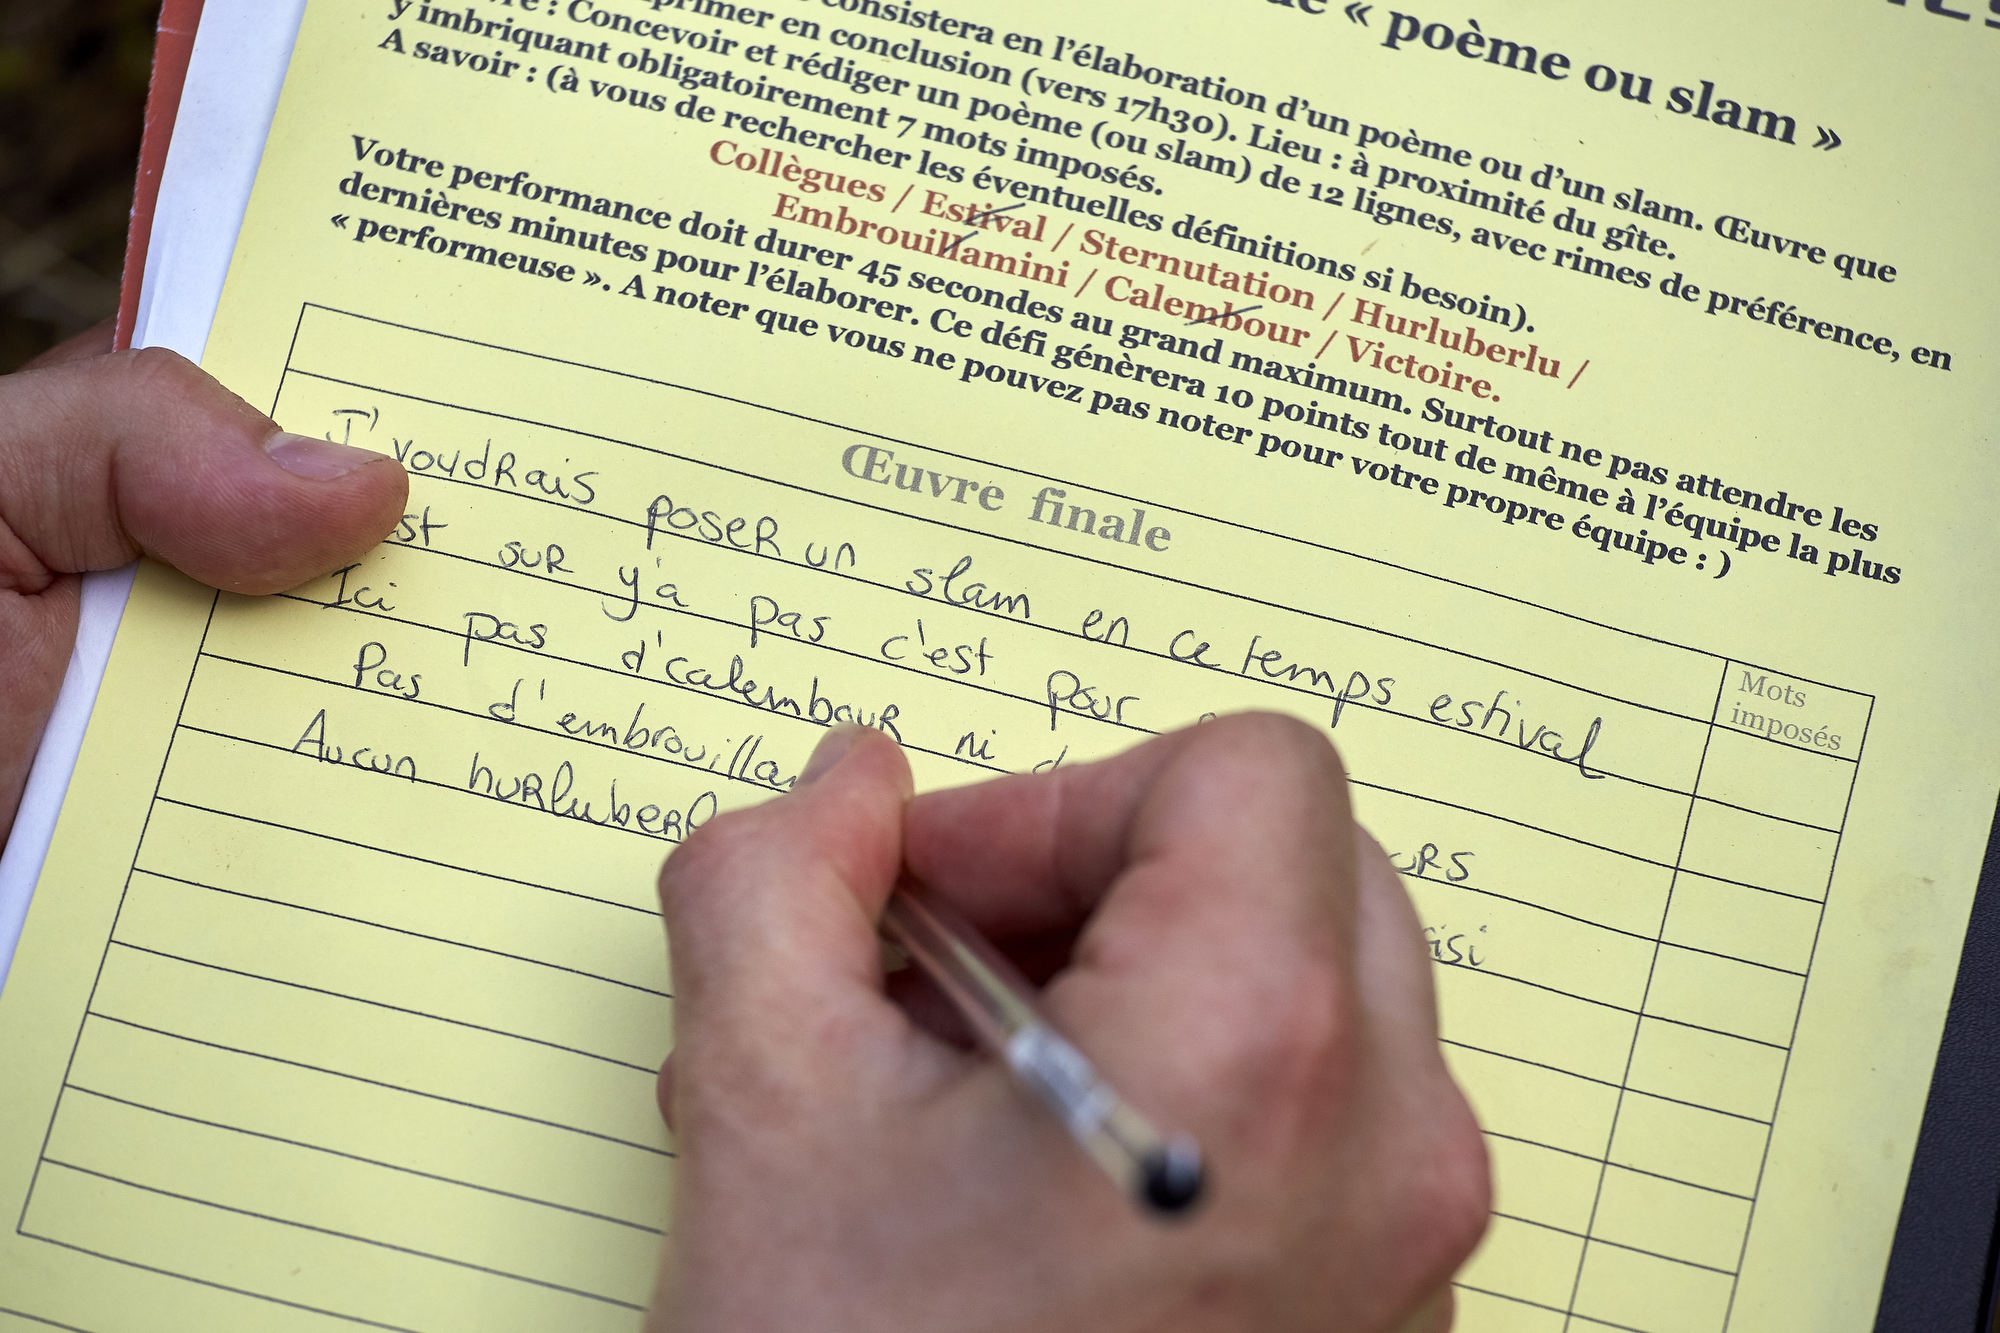 « poème ou slam »
consistera en l'élaboration d'un poème ou d'un slam. Œuvre que
en conclusion (vers 17h30). Lieu : à proximité du gîte.
: Concevoir et rédiger un poème (ou slam) de 12 lignes, avec rimes de préférence, en
y imbriquant obligatoirement 7 mots imposés.
A savoir : (à vous de rechercher les éventuelles définitions si besoin).
Collègues / Estival / Sternutation / Hurluberlu /
Embrouillamini / Calembour / Victoire.
Votre performance doit durer 45 secondes au grand maximum. Surtout ne pas attendre les
dernières minutes pour l'élaborer. Ce défi génèrera 10 points tout de même à l'équipe la plus
« performeuse ». A noter que vous ne pouvez pas noter pour votre propre équipe : )
Œuvre finale
Mots
imposés
J'voudrais poser un slam en ce temps estival
sur y'a pas c'est pour
Ici pas d'calembour ni
Pas
Aucun